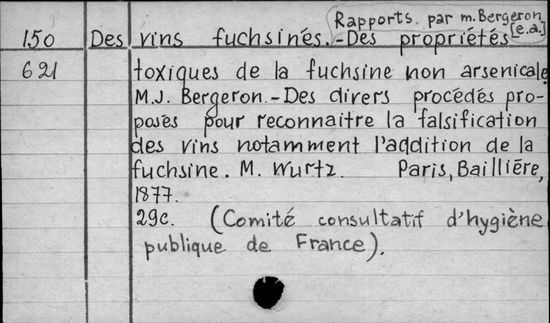 Rapports par m. Bergeron [e.a.]
150 Des vins fuchsinés.-Des propriétés
621 toxiques de la fuchsine non arsenicale
M.J. Bergeron.-Des divers procédés pro-
posés pour reconnaitre la falsification
des vins notamment l'addition de la
fuchsine. M. Wurtz. Paris, Baillière,
1877.
29c. (Comité consultatif d'hygiène
publique de France).